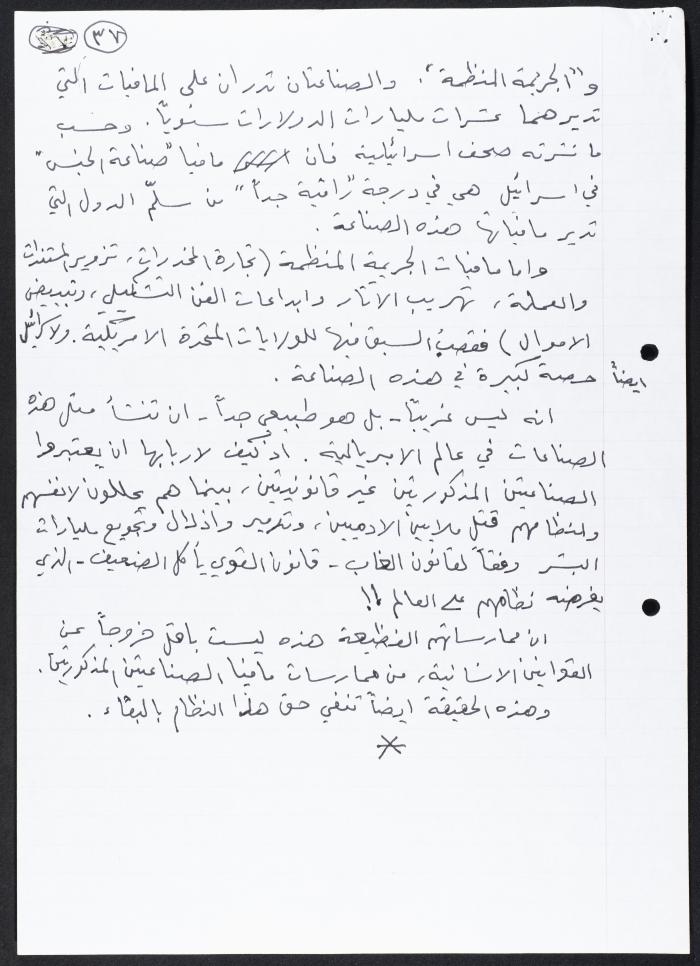 ٣٧
و"الجريمة المنظمة". والصناعتان تدران على المافيات التي
تديرهما عشرات مليارات الدولارات سنوياً. وحسب
ما نشرته صحف اسرائيلية فان مافيا "صناعة الجنس"
في اسرائيل هي في درجة "راقية جداً" من سلّم الدول التي
تدير مافياتها هذه الصناعة.
واما مافيات الجريمة المنظمة (تجارة المخدرات، تزوير المستندات
والعملة، تهريب الآثار وابداعات الفن التشكيلي، وتبييض
الاموال) فقصب السبق فيها للولايات المتحدة الامريكية. ولاسرائيل
ايضاً حصة كبيرة في هذه الصناعة.
انه ليس غريباً - بل هو طبيعي جداً - ان تنشأ مثل هذه
الصناعات في عالم الامبريالية. اذ كيف لاربابها ان يعتبروا
الصناعيتن المذكورتين غير قانونيتين، بينما هم يحللون لانفسهم
ولنظامهم قتل ملايين الادميين، وتدمير واذلال وتجويع مليارات
البشر وفقاً لقانون الغاب - قانون القوي يأكل الضعيف - الذي
يفرضه نظامهم على العالم!!
ان ممارساتهم الفظيعة هذه ليست باقل خروجاً عن
القوانين الانسانية، من ممارسات مافيا الصناعيتن المذكورتين.
وهذه الحقيقة ايضاً تنفي حق هذا النظام بالبقاء.